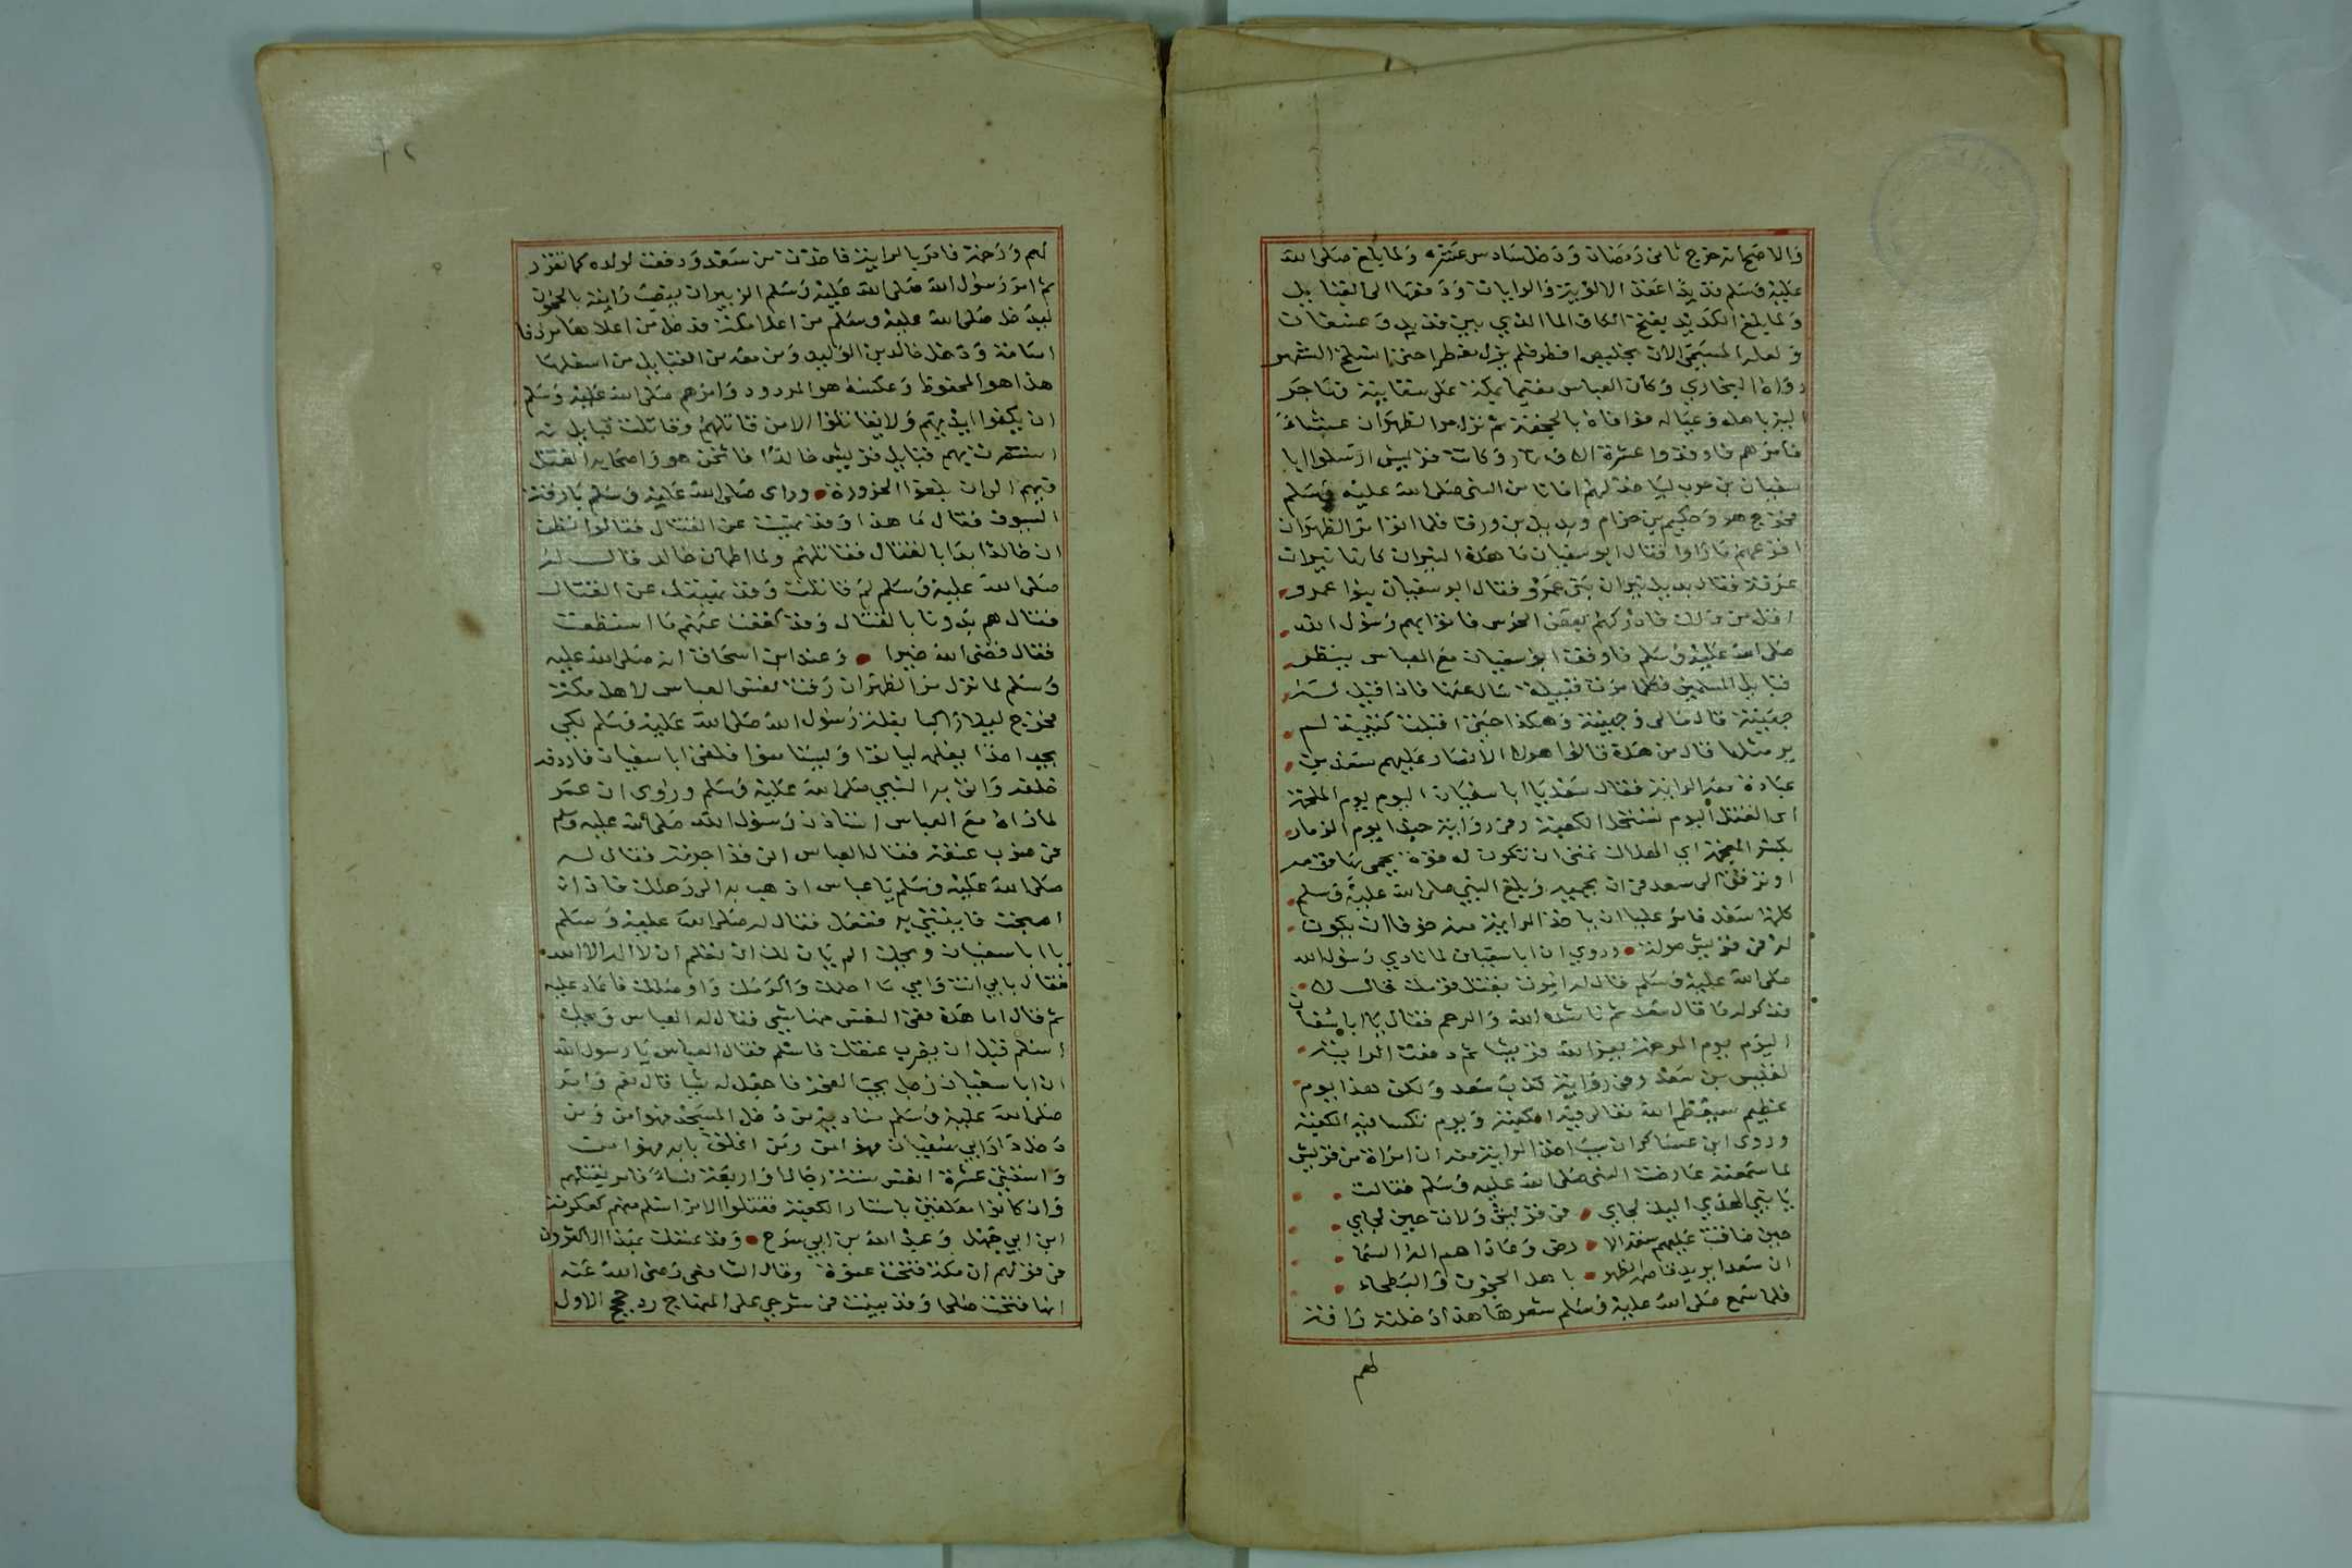 والاصح انه خرج ثامن رمضان ودخل سادس عشره ولما بلغ صلى الله
عليه وسلم قديدا عقد الالوية والرايات ودفعها الى القبايل
ولما بلغ الكديد بفتح الكاف الما الذي بين قديد وعسفان
المسمى الان بخليص افطر فلم يزل مفطرا حتى انسلخ الشهر
رواه البخاري وكان العباس مقيما بمكة على سقايته فهاجر
اليه باهله وعياله فوافاه بالجحفة ثم نزل مر الظهران عشاء
فامرهم فاوقدوا عشرة الاف نار وكانت قريش ارسلوا ابا
سفيان بن حرب لياخذ لهم امانا من النبي صلى الله عليه وسلم
فخرج هو وحكيم بن حزام وبديل بن ورقا فلما اتوا مر الظهران
افزعهم ما راوا فقال ابو سفيان ما هذه النيران كانها نيران
عرفة فقال بديل نيران بني عمرو فقال ابو سفيان بنوا عمرو
اقل من ذلك فادركهم بعض الحرس فاتوا بهم رسول الله
صلى الله عليه وسلم فاوقف ابو سفيان مع العباس ينظر
قبايل المسلمين فكلما مرت قبيلة سال عنها فاذا قيل له
جهينة قال مالي وجهينة وهكذا حتى اقبلت كتيبة لم
ير مثلها قال من هذه قالوا هولا الانصار عليهم سعد بن
عبادة معه الراية فقال سعد يا ابا سفيان اليوم يوم الملحمة
اي القتل اليوم تستحل الكعبة وفي رواية حبذا يوم الذمار
بكسر المعجمة اي الهلاك تمنى ان تكون له قوة يحمي بها قومه
او نزقى الى سعد من ان يحميه وبلغ النبي صلى الله عليه وسلم
كلمة سعد فامر عليا ان ياخذ الراية منه خوفا ان يكون
له في قريش صولة وروي ان ابا سفيان لما نادي رسول الله
صلى الله عليه وسلم قال له امرت بقتل قومك قال لا
فذكر له ما قال سعد ثم ناشده الله والرحم فقال يا ابا سفيان
اليوم يوم المرحمة يعز الله قريشا ثم دفعت الراية
لقيس بن سعد وفي رواية كذب سعد ولكن هذا يوم
عظيم يعظم الله تعالى فيه الكعبة ويوم تكسا فيه الكعبة
وروى ابن عساكر ان سبب اخذ الراية منه ان امراة من قريش
لما سمعته عارضت النبي صلى الله عليه وسلم فقالت
يا نبي الهدي اليك لجاي من قريش ولات حين لجاي
حين ضاقت عليهم سعة الا رض وعاداهم اله السما
ان سعدا يريد قاصمة الظهر با هل الحجون والبطحاء
فلما سمع صلى الله عليه وسلم شعرها هذا دخلته رافة
لهم
لهم ورحمة فامر بالراية فاخذت من سعد ودفعت لولده كما تقرر
ثم امر رسول الله صلى الله عليه وسلم الزبير ان ينصب رايته بالحجون
ليدخل صلى الله عليه وسلم من اعلا مكة فدخل من اعلاها مردفا
اسامة ودخل خالد بن الوليد ومن معه من القبايل من اسفلها
هذا هو المحفوظ وعكسه هو المردود وامرهم صلى الله عليه وسلم
ان يكفوا ايديهم ولا يقاتلوا الا من قاتلهم وقاتلت قبايل
استنصرت بهم قبايل قريش خالدا فاثخن هو واصحابه القتل
فيهم الى ان بلغوا الحزورة وراى صلى الله عليه وسلم بارقة
السيوف فقال ما هذا وقد نهيت عن القتال فقالوا نظن
ان خالدا بدا بالقتال فقاتلهم ولما اطمان خالد قال له
صلى الله عليه وسلم لم قاتلت وقد نهيتك عن القتال
فقال هم بدونا بالقتال وقد كففت عنهم ما استطعت
فقال قضى الله خيرا وعند ابن اسحاق انه صلى الله عليه
وسلم لما نزل مر الظهران رقت نفس العباس لاهل مكة
فخرج ليلا راكبا بغلة رسول الله صلى الله عليه وسلم لكي
يجد احدا يعلمهم لياتوا وليستامنوا فلقى ابا سفيان فاردفه
خلفه واتى به النبي صلى الله عليه وسلم وروى ان عمر
لما راه مع العباس استاذن رسول الله صلى الله عليه وسلم
في ضرب عنقه فقال العباس اني قد اجرته فقال له
صلى الله عليه وسلم يا عباس اذهب به الى رحلك فاذا
اصبحت فايتني به ففعل فقال له صلى الله عليه وسلم
يا ابا سفيان ويحك الم يان لك ان تعلم ان لا اله الا الله
فقال بابي انت وامي ما احلمك واكرمك واوصلك فاعاد عليه
ثم قال اما هذه ففي النفس منها شي فقال له العباس ويحك
اسلم قبل ان يضرب عنقك فاسلم فقال العباس يا رسول الله
ان ابا سفيان رجل يحب الفخر فاجعل له شيا قال نعم وامر
صلى الله عليه وسلم مناديه من دخل المسجد فهو امن ومن
دخل دار ابي سفيان فهو امن ومن اغلق بابه فهو امن
واستثنى عشرة انفس ستة رجالا واربعة نساء فامر بقتلهم
وان كانوا معلقين باستار الكعبة فقتلوا الا من اسلم منهم كعكرمة
ابن ابي جهل وعبد الله بن ابي سرح وقد تمسك بهذا الاكثرون
في قولهم ان مكة فتحت عنوة وقال الشافعى رضى الله عنه
انما فتحت صلحا وقد بينت في شرحي على المنهاج رد حجج الاول